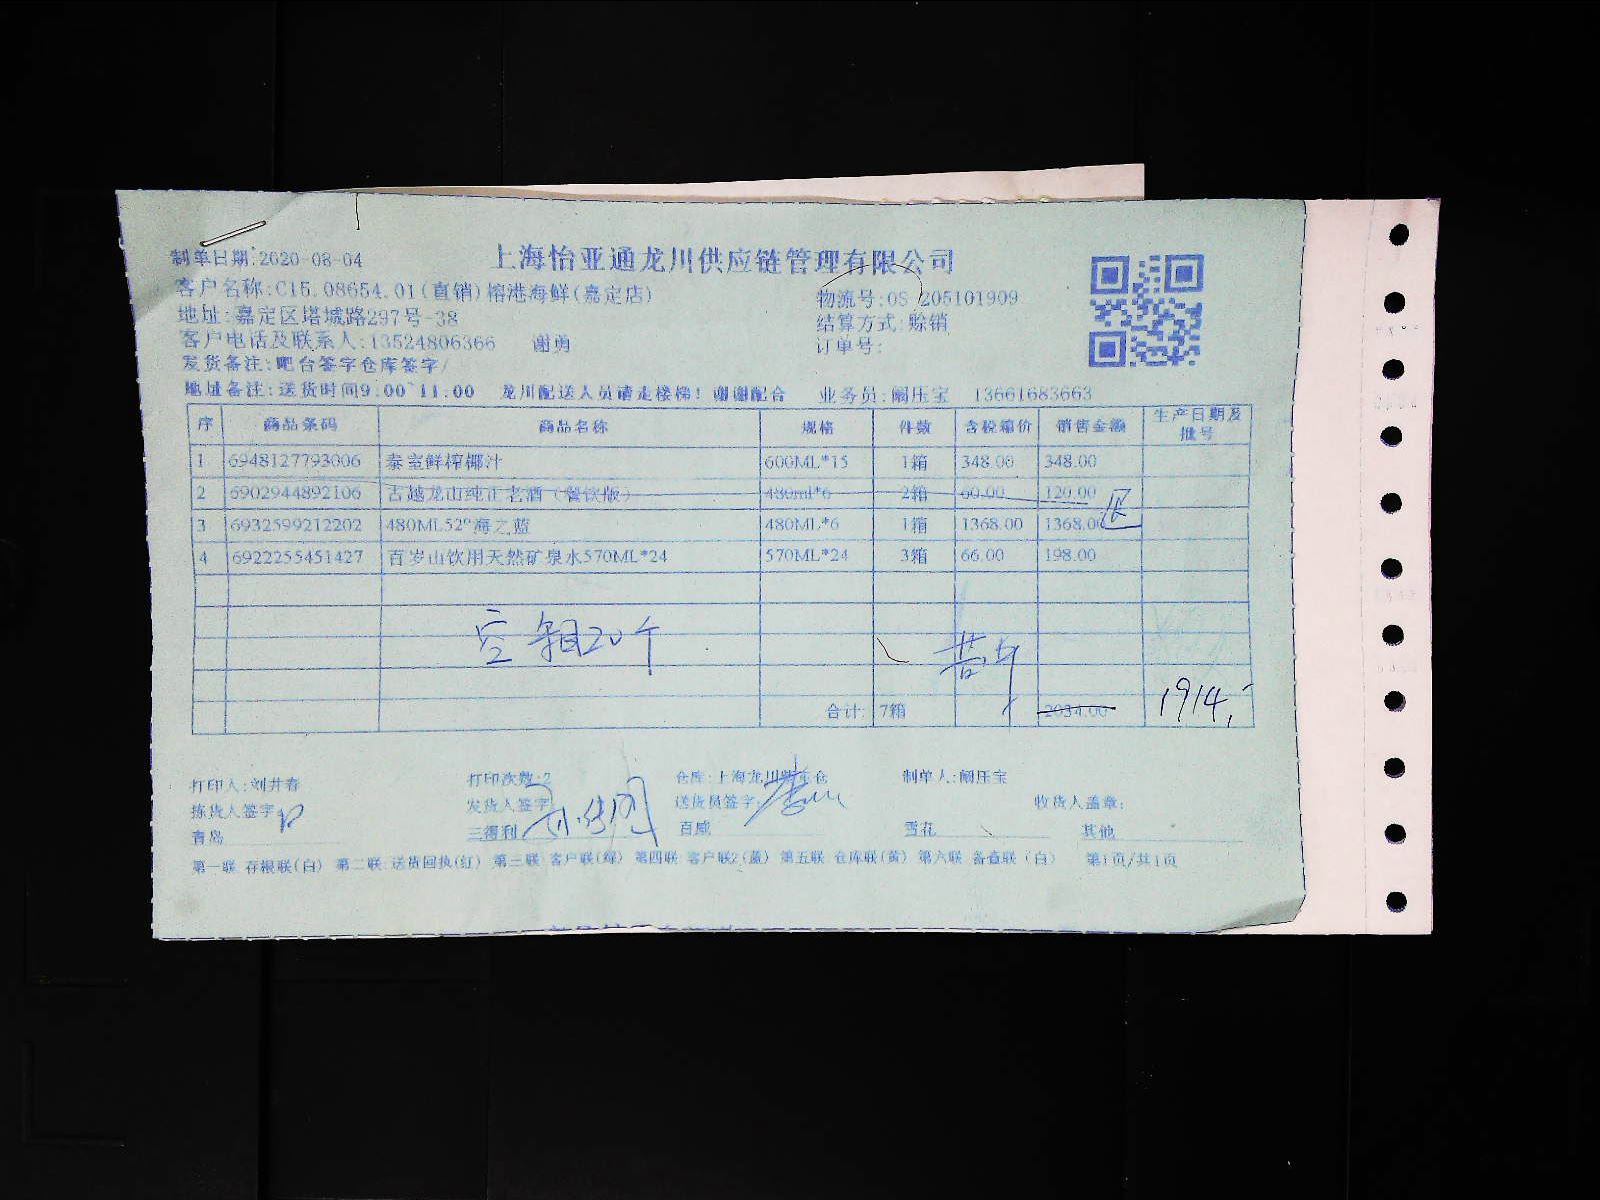 上海怡亚通龙川供应链管理有限公司
制单日期:2020-08-04
客户名称:C15.08654.01(直销)榕港海鲜(嘉定店)
物流号:OS-205101909
地址:嘉定区塔城路297号-38
结算方式:赊销
客户电话及联系人:13524806366 谢勇
订单号:
发货备注:吧台签字仓库签字/
地址备注:送货时间9:00~11:00 龙川配送人员请走楼梯!谢谢配合 业务员:阚压宝 13661683663
序 商品条码 商品名称 规格 件数 含税箱价 销售金额 生产日期及批号
1 6948127793006 泰室鲜榨椰汁 600ML*15 1箱 348.00 348.00
2 6902944892106 古越龙山纯正老酒(餐饮版) 480ml*6 2箱 60.00 120.00
3 6932599212202 480ML52°海之蓝 480ML*6 1箱 1368.00 1368.00
4 6922255451427 百岁山饮用天然矿泉水570ML*24 570ML*24 3箱 66.00 198.00
空 20个
合计: 7箱 2034.00 1914.-
打印人:刘井春 打印次数:2 仓库:上海龙川 仓 制单人:阚压宝
拣货人签字: 发货人签字: 送货员签字: 收货人盖章:
青岛 三得利 百威 雪花 其他
第一联 存根联(白) 第二联:送货回执(红) 第三联 客户联(绿) 第四联 客户联2(蓝) 第五联 仓库联(黄) 第六联 备查联 (白) 第1页/共1页